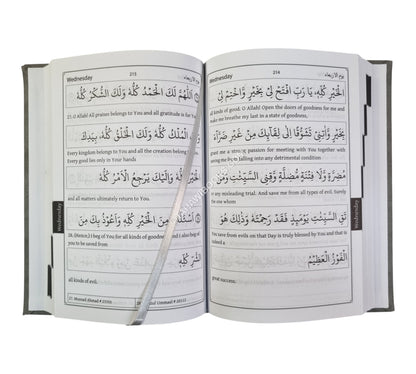 Wednesday 214 يوم الأربعاء
الْخَيْرِ كُلِّهٖ، يَا رَبِّ افْتَحْ لِيْ بِخَيْرٍ وَّاخْتِمْ لِيْ
all kinds of good. O Allah! Open the doors of goodness for me and
make me breathe my last in a state of goodness.
بِخَيْرٍ وَّاٰتِنِيْ تَشَوُّقًا اِلٰى لِقَآئِكَ مِنْ غَيْرِ ضَرَّآءَ
grant me a strong passion for meeting with You together with
saving me from falling into any detrimental condition
مُضِرَّةٍ وَّلَا فِتْنَةٍ مُّضِلَّةٍ وَّقِنِي السَّيِّئٰتِ وَمَنْ
or any misleading trial. And save me from all types of evil. Surely
the one whom
تَقِ السَّيِّئٰتِ يَوْمَئِذٍ فَقَدْ رَحِمْتَهٗ وَذٰلِكَ هُوَ
You save from evils on that Day is truly blessed by You and that is
indeed a
الْفَوْزُ الْعَظِيْمُ
great success.
Wednesday
Wednesday 215 يوم الأربعاء
اَللّٰهُمَّ لَكَ الْحَمْدُ كُلُّهٗ وَلَكَ الشُّكْرُ كُلُّهٗ
27. O Allah! All praise belongs to You and all gratitude is for You
وَلَكَ الْمُلْكُ كُلُّهٗ وَلَكَ الْخَلْقُ كُلُّهٗ بِيَدِكَ
Every kingdom belongs to You and all the creation belongs to You.
Every good lies only in Your hands
الْخَيْرُ كُلُّهٗ وَاِلَيْكَ يَرْجِعُ الْاَمْرُ كُلُّهٗ
and all matters ultimately return to You.
اَسْئَلُكَ مِنَ الْخَيْرِ كُلِّهٖ وَاَعُوْذُ بِكَ مِنَ
28. I beg of You for all kinds of goodness and I also beg of
you to be saved from
الشَّرِّ كُلِّهٖ
all kinds of evil.
27. Musnad Ahmad
Ummaal
Wednesday